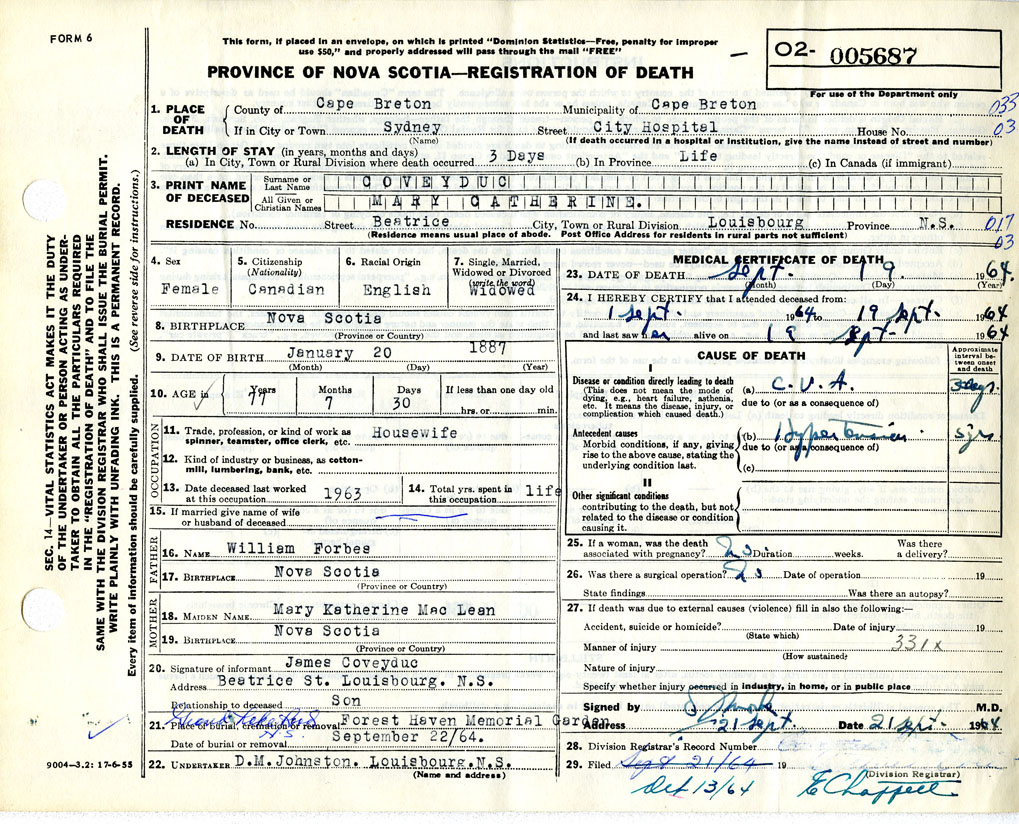 FORM 6
This form, if placed in an envelope, on which is printed "Dominion Statistics—Free, penalty for improper
use $50," and properly addressed will pass through the mail "FREE"
PROVINCE OF NOVA SCOTIA—REGISTRATION OF DEATH
02- 005687
For use of the Department only
SEC. 14—VITAL STATISTICS ACT MAKES IT THE DUTY
OF THE UNDERTAKER OR PERSON ACTING AS UNDER-
TAKER TO OBTAIN ALL THE PARTICULARS REQUIRED
IN THE "REGISTRATION OF DEATH" AND TO FILE THE
SAME WITH THE DIVISION REGISTRAR WHO SHALL ISSUE THE BURIAL PERMIT.
WRITE PLAINLY WITH UNFADING INK. THIS IS A PERMANENT RECORD.
Every item of information should be carefully supplied. (See reverse side for instructions.)
1. PLACE OF DEATH County of Cape Breton Municipality of Cape Breton 033
If in City or Town Sydney Street City Hospital House No. 03
(Name) (If death occurred in a hospital or institution, give the name instead of street and number)
2. LENGTH OF STAY (in years, months and days)
(a) In City, Town or Rural Division where death occurred 3 Days (b) In Province Life (c) In Canada (if immigrant)
3. PRINT NAME OF DECEASED Surname or Last Name COVEYDUC
All Given or Christian Names MARY CATHERINE.
RESIDENCE No. Street Beatrice City, Town or Rural Division Louisbourg Province N.S. 017
(Residence means usual place of abode. Post Office Address for residents in rural parts not sufficient) 03
4. Sex Female
5. Citizenship (Nationality) Canadian
6. Racial Origin English
7. Single, Married, Widowed or Divorced (write the word) Widowed
8. BIRTHPLACE Nova Scotia
(Province or Country)
9. DATE OF BIRTH January 20 1887
(Month) (Day) (Year)
10. AGE in Years 77 Months 7 Days 30 If less than one day old hrs. or min.
OCCUPATION
11. Trade, profession, or kind of work as spinner, teamster, office clerk, etc. Housewife
12. Kind of industry or business, as cotton-mill, lumbering, bank, etc.
13. Date deceased last worked at this occupation 1963
14. Total yrs. spent in this occupation life
15. If married give name of wife or husband of deceased
FATHER
16. NAME William Forbes
17. BIRTHPLACE Nova Scotia
(Province or Country)
MOTHER
18. MAIDEN NAME Mary Katherine Mac Lean
19. BIRTHPLACE Nova Scotia
(Province or Country)
20. Signature of informant James Coveyduc
Address Beatrice St. Louisbourg. N.S.
Relationship to deceased Son
21. Place of burial, cremation or removal Forest Haven Memorial Garden
N.S.
Date of burial or removal September 22/64.
22. UNDERTAKER D.M.Johnston. Louisbourg.N.S.
(Name and address)
9004—3.2: 17-6-55
MEDICAL CERTIFICATE OF DEATH
23. DATE OF DEATH Sept. 19 1964.
(Month) (Day) (Year)
24. I HEREBY CERTIFY that I attended deceased from:
1 Sept. 1964 to 19 Sept. 1964
and last saw h er alive on 19 Sept. 1964
CAUSE OF DEATH
Approximate interval between onset and death
I
Disease or condition directly leading to death (a) C.V.A. 3 days.
(This does not mean the mode of dying, e.g., heart failure, asthenia, etc. It means the disease, injury, or complication which caused death.)
due to (or as a consequence of)
Antecedent causes (b) Hypertension 5 yrs
Morbid conditions, if any, giving rise to the above cause, stating the underlying condition last.
due to (or as a consequence of)
(c)
II
Other significant conditions
contributing to the death, but not related to the disease or condition causing it.
25. If a woman, was the death associated with pregnancy? No Duration weeks. Was there a delivery?
26. Was there a surgical operation? No Date of operation 19
State findings Was there an autopsy?
27. If death was due to external causes (violence) fill in also the following:—
Accident, suicide or homicide? Date of injury 19
(State which)
Manner of injury 331x
(How sustained)
Nature of injury
Specify whether injury occurred in industry, in home, or in public place
Signed by M.D.
Address 21 Sept. Date 21 Sept. 1964
28. Division Registrar's Record Number
29. Filed Sept 21/64 19
Oct 13/64 E Chappell
(Division Registrar)